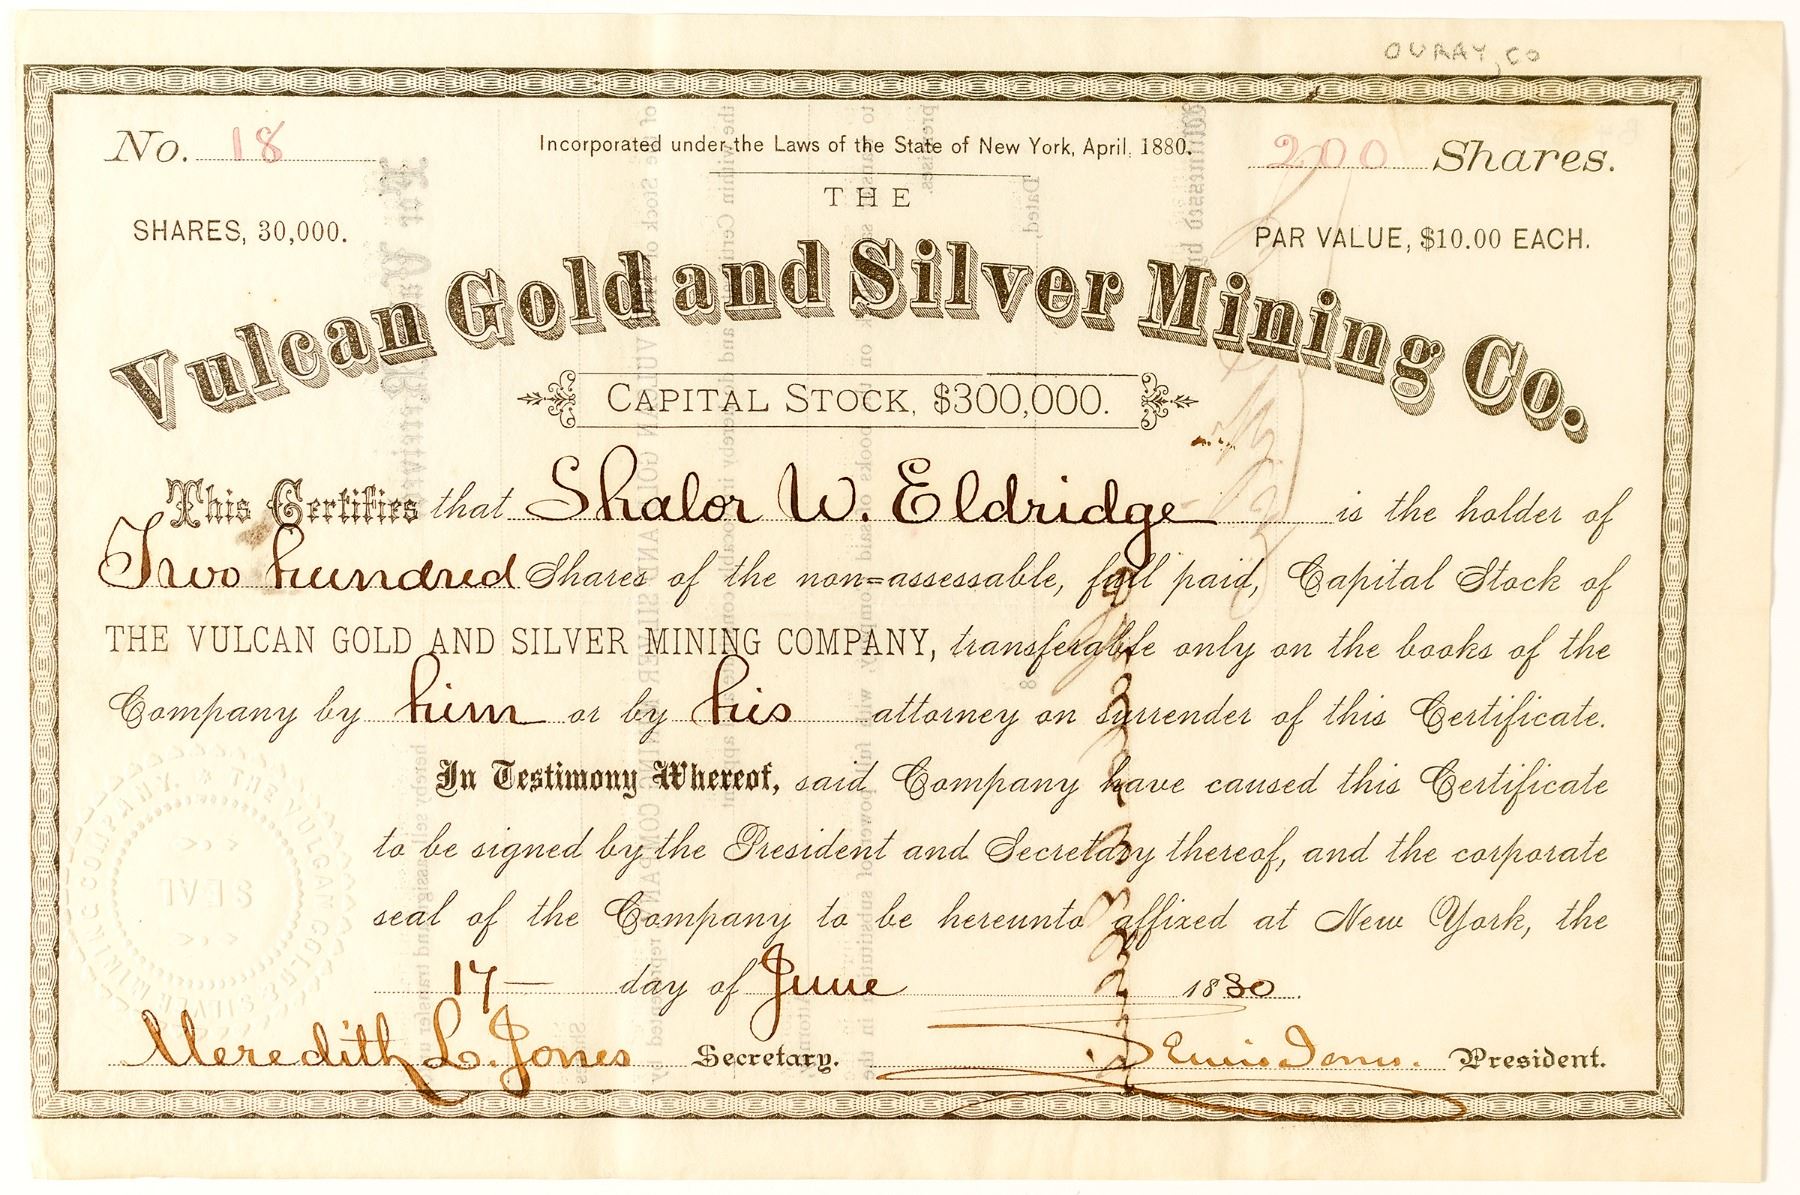 OURAY, CO
No. 18
Incorporated under the Laws of the State of New York, April, 1880.
200 Shares.
THE
SHARES, 30,000.
PAR VALUE, $10.00 EACH.
Vulcan Gold and Silver Mining Co.
CAPITAL STOCK, $300,000.
This Certifies that Shalor W. Eldridge is the holder of
Two hundred Shares of the non=assessable, full paid, Capital Stock of
THE VULCAN GOLD AND SILVER MINING COMPANY, transferable only on the books of the
Company by him or by his attorney on surrender of this Certificate.
In Testimony Whereof, said Company have caused this Certificate
to be signed by the President and Secretary thereof, and the corporate
seal of the Company to be hereunto affixed at New York, the
17 — day of June 1880.
Meredith L. Jones Secretary.
President.
THE VULCAN GOLD & SILVER MINING COMPANY.
SEAL